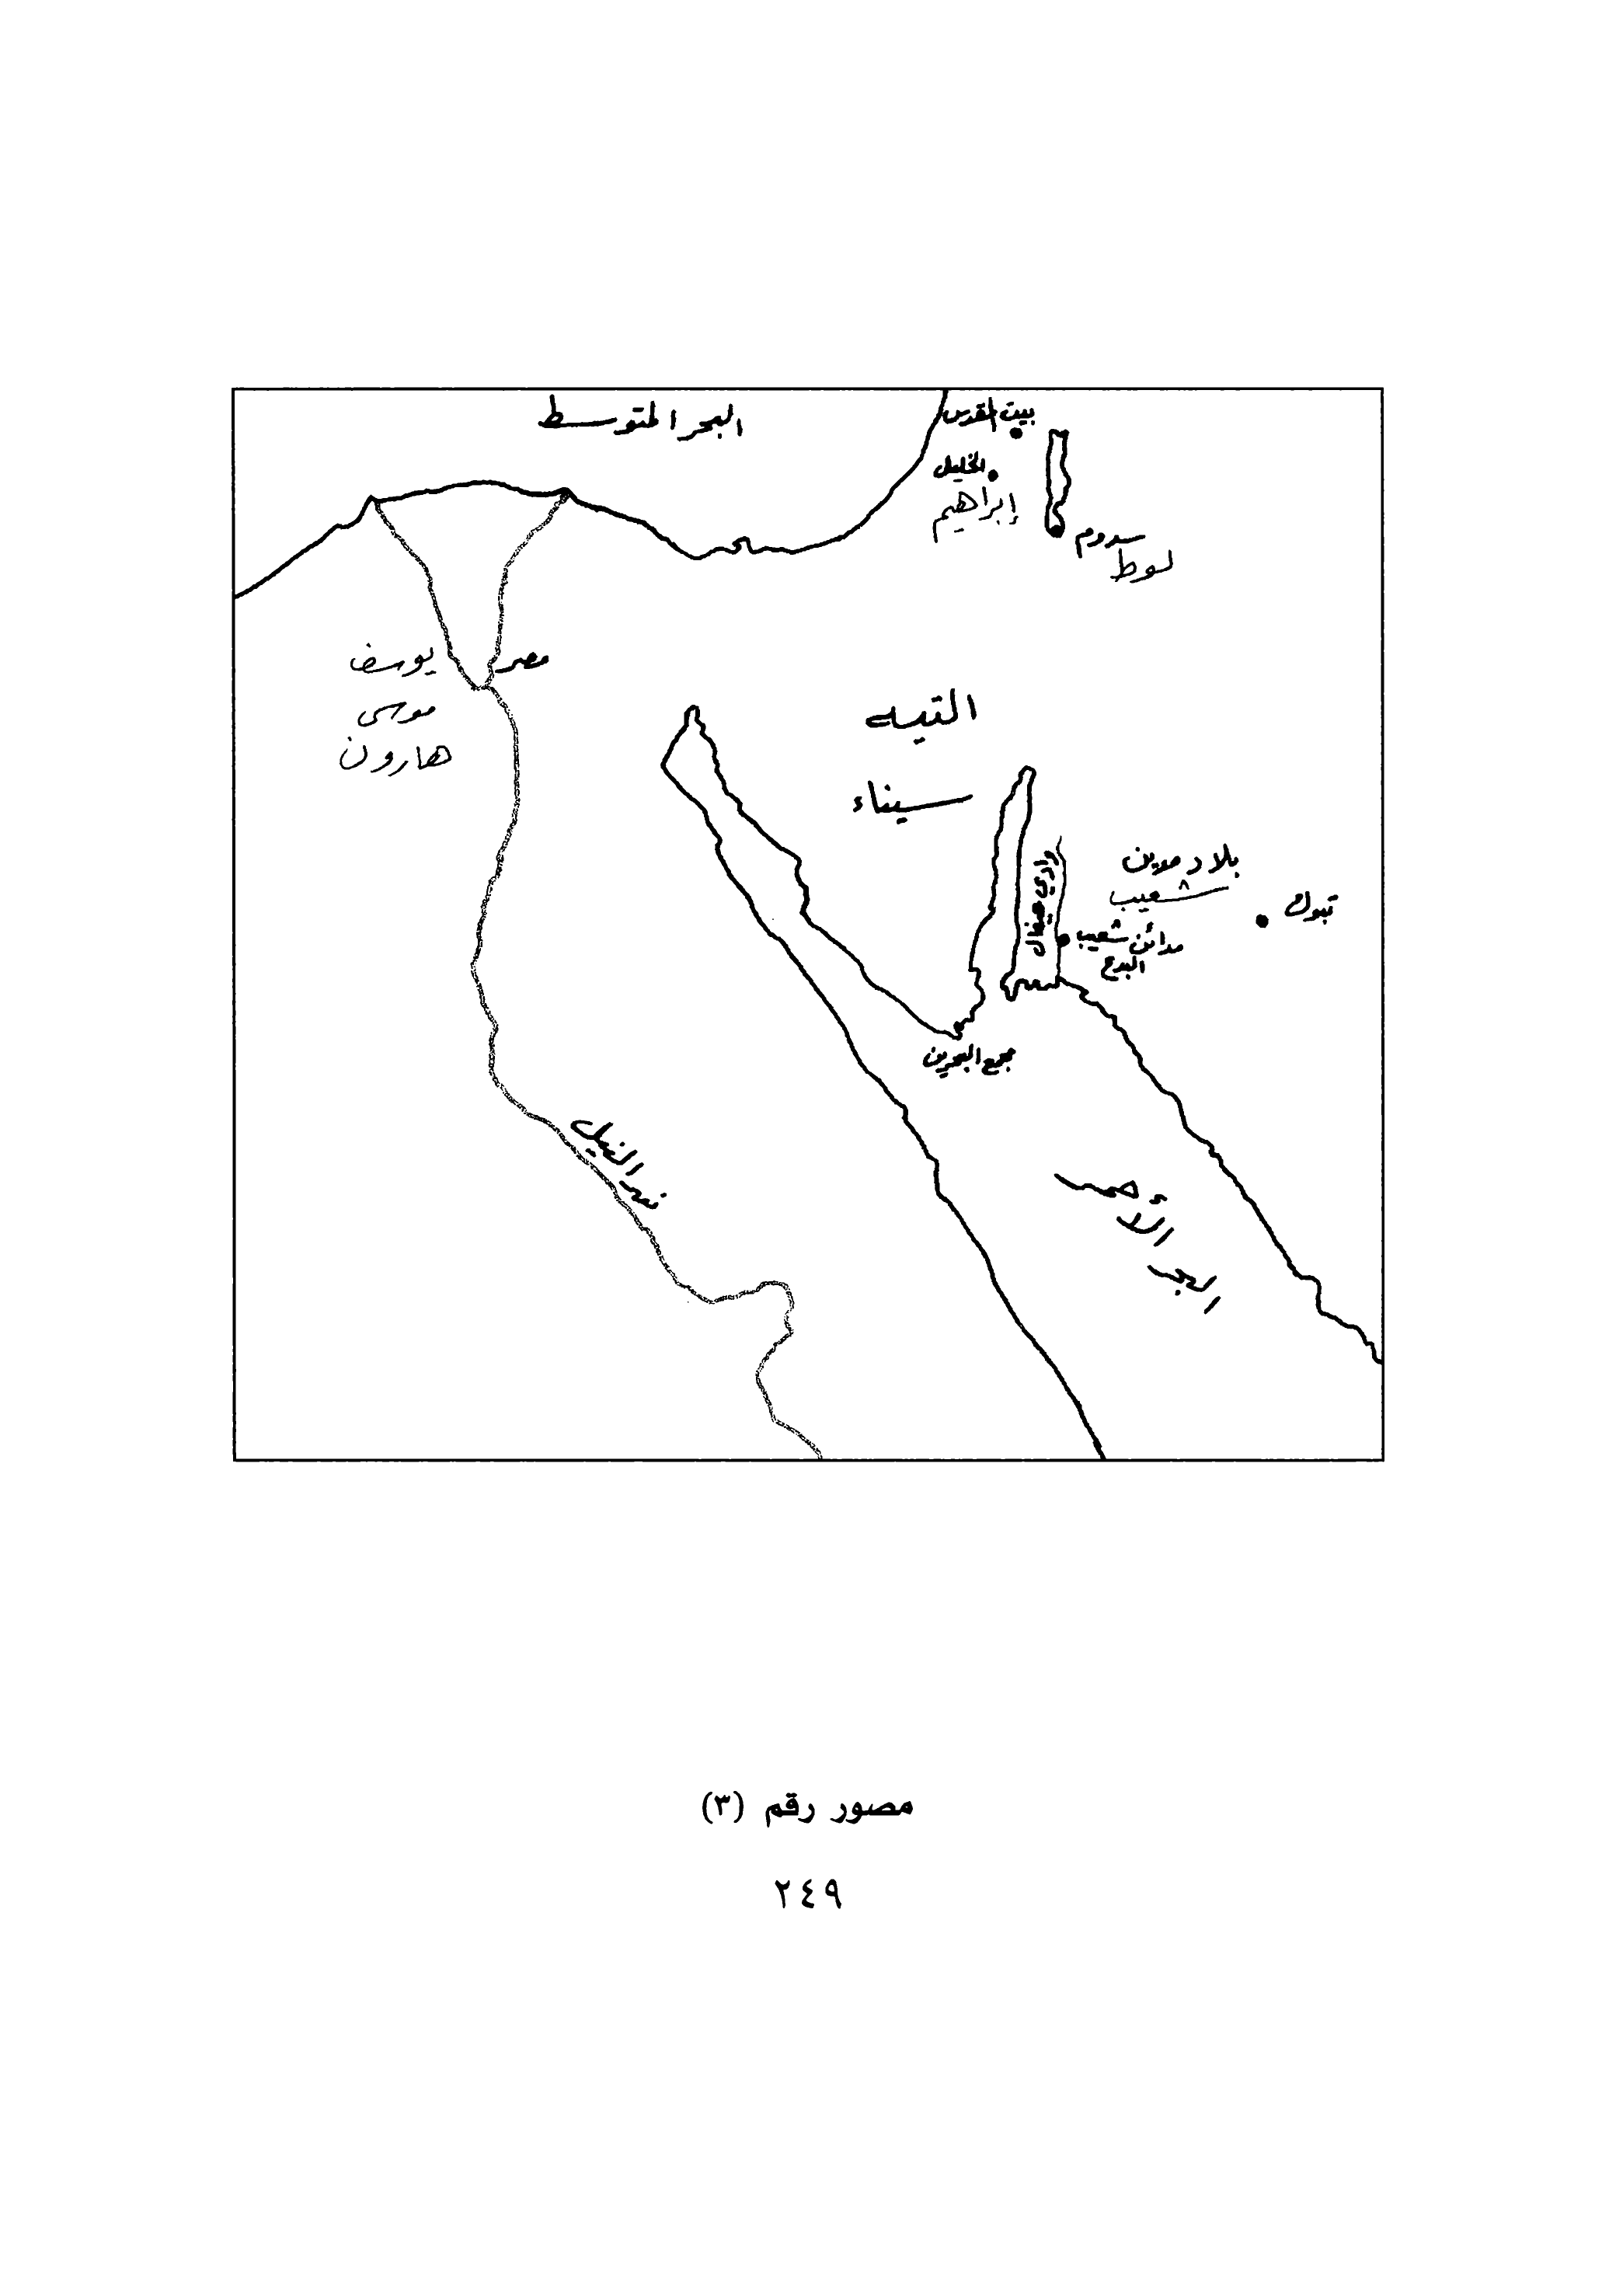 البحر المتوسط
بيت المقدس
الخليل
إبراهيم
سدوم
لوط
مصر
يوسف
موسى
هارون
التيه
سيناء
بلاد مدين
شعيب
تبوك
مدائن شعيب
البدع
مجمع البحرين
نهر النيل
البحر الأحمر
مصور رقم (٣)
٢٤٩